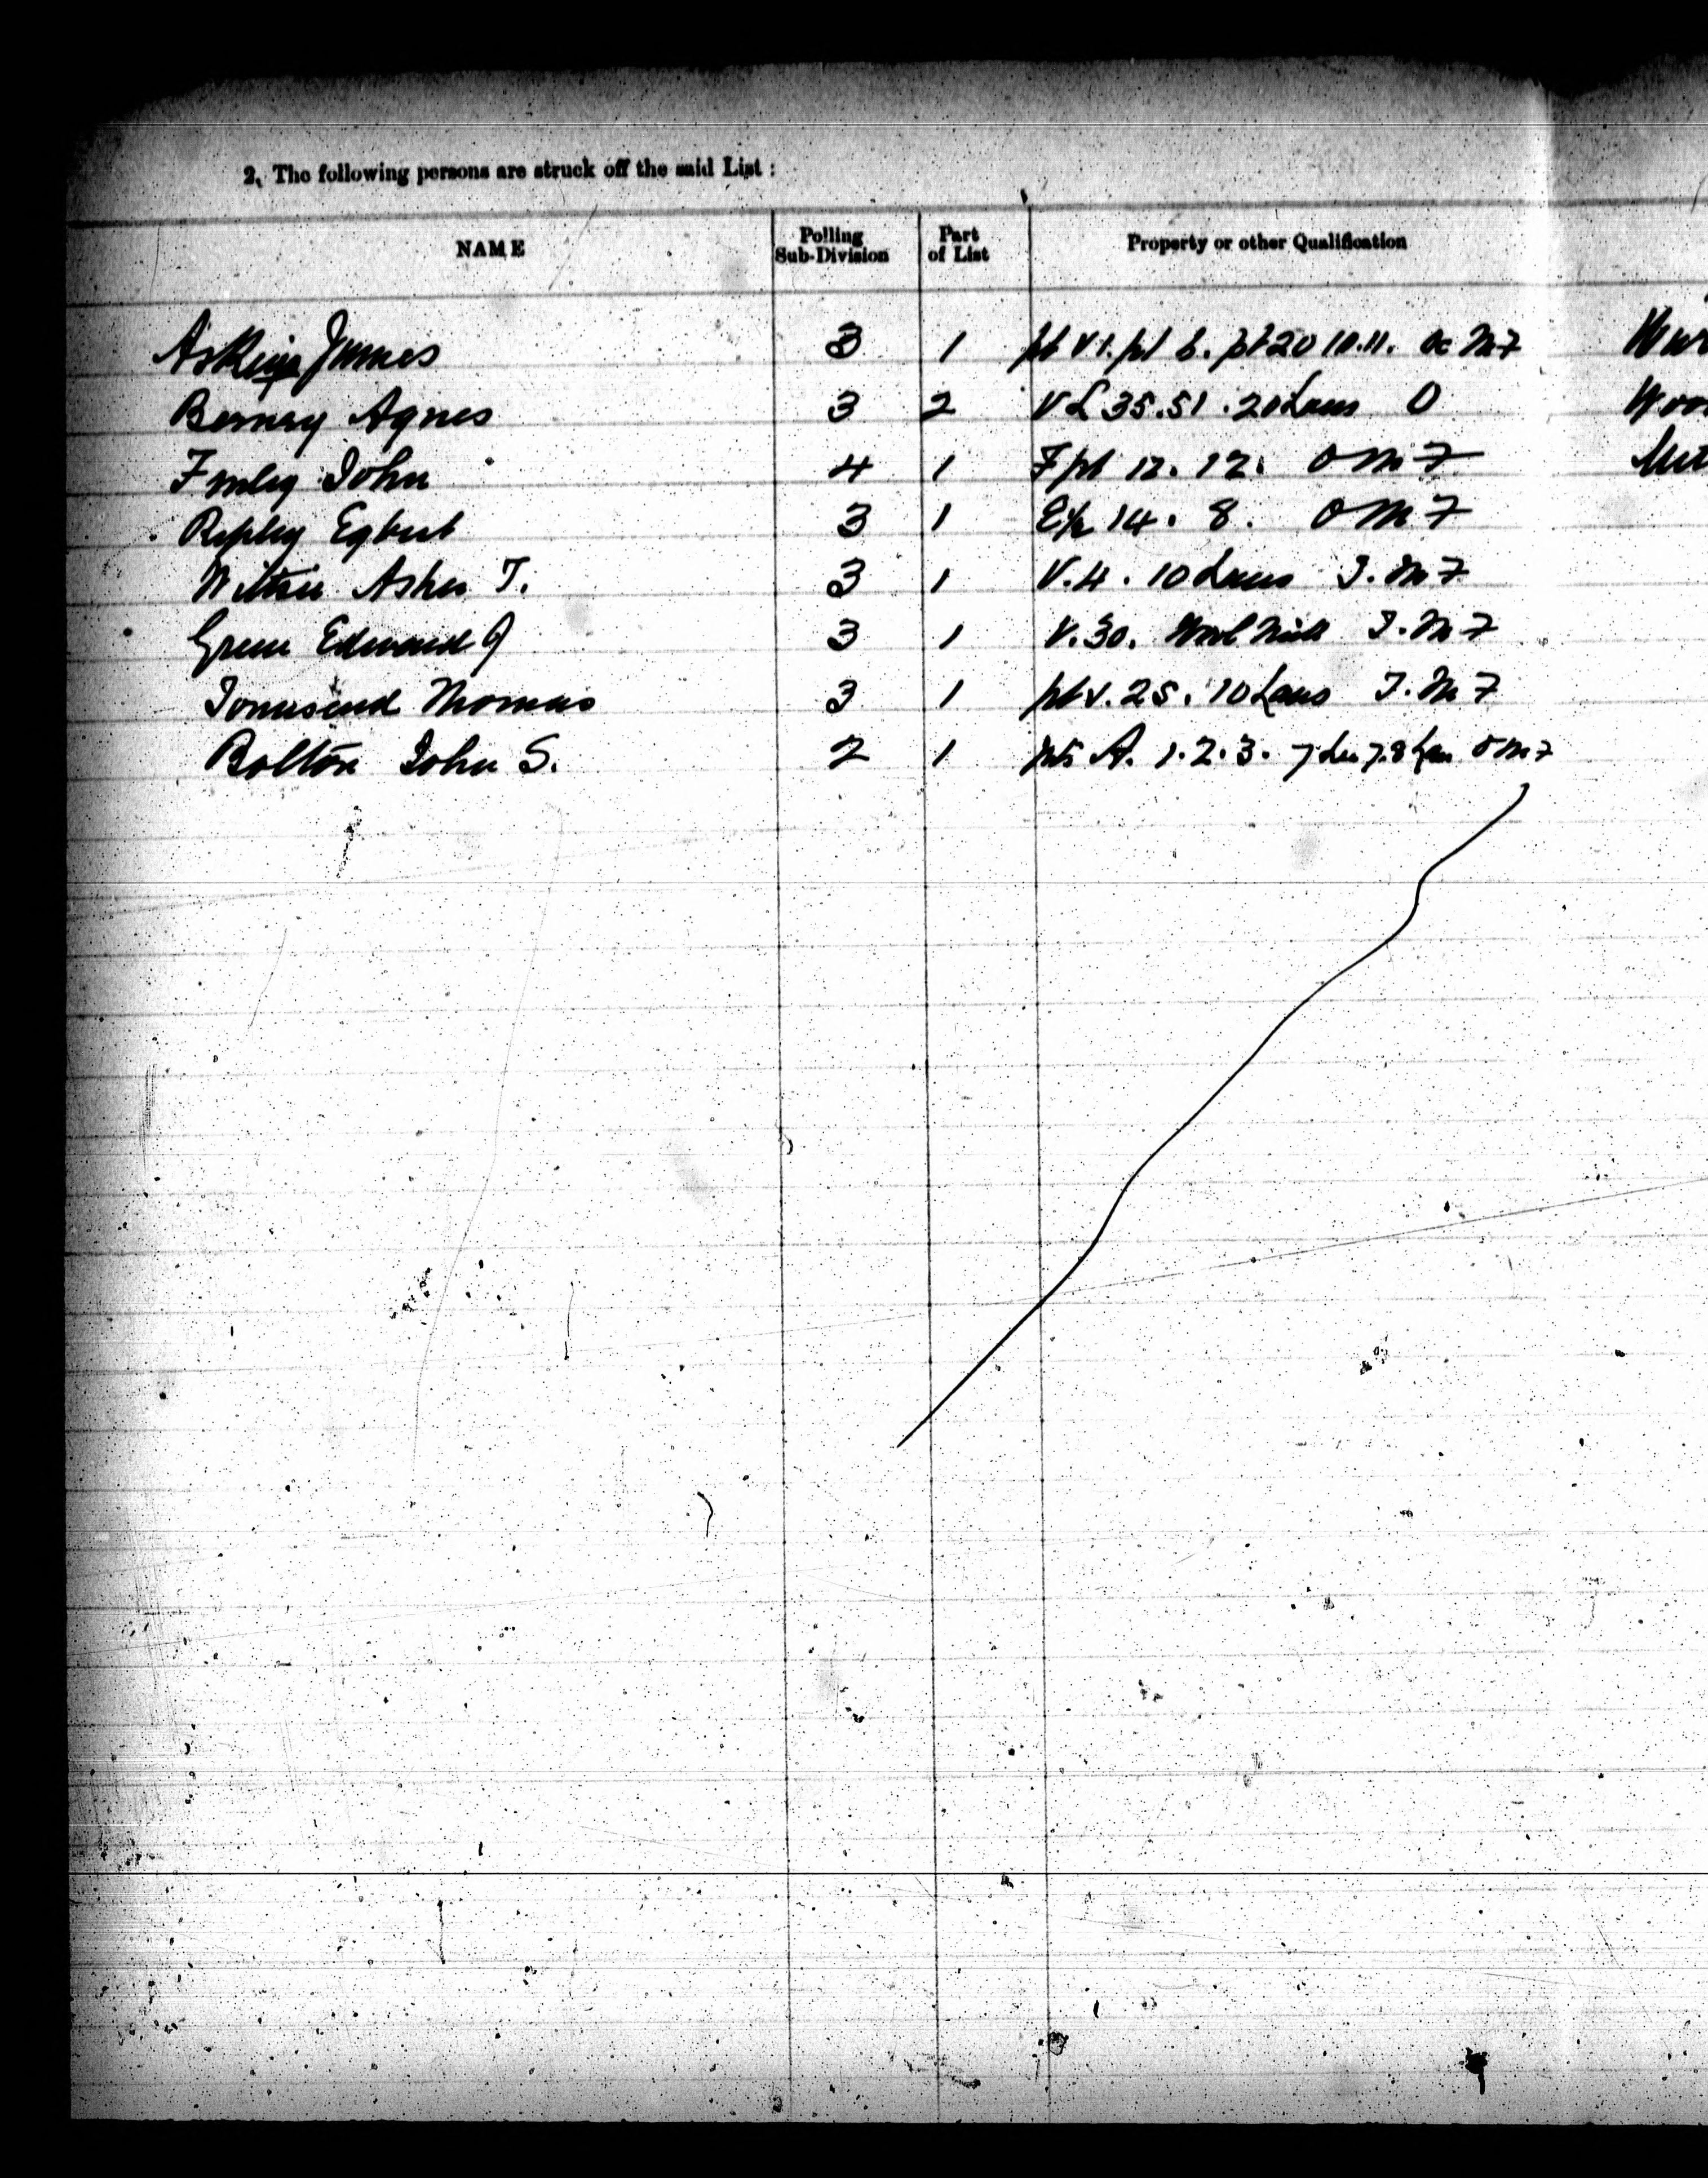 2. The following persons are struck off the said List :
NAME Polling Sub-Division Part of List Property or other Qualification
Askins James 3 1 pt V 1. pt 6. pt 20 10.11. Oc M F
Berney Agnes 3 2 V L 35.51 . 20 O
John 4 1 F pt 12. 12. O M F
Ripley Egbert 3 1 14. 8. O M F
Wiltsie Asher T. 3 1 V. 4. 10 T. M F
Green Edward J 3 1 V. 30. T. M F
Townsend Thomas 3 1 pt V. 25. 10 T. M F
Bolton John S. 2 1 pts A. 1. 2. 3. 7 7.8 O M F